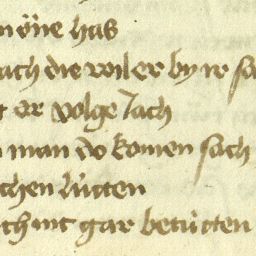 öne has
ach die wil er by ir sa
er volget ach
man do komen sach
chen lütten
ch nit gar betütten